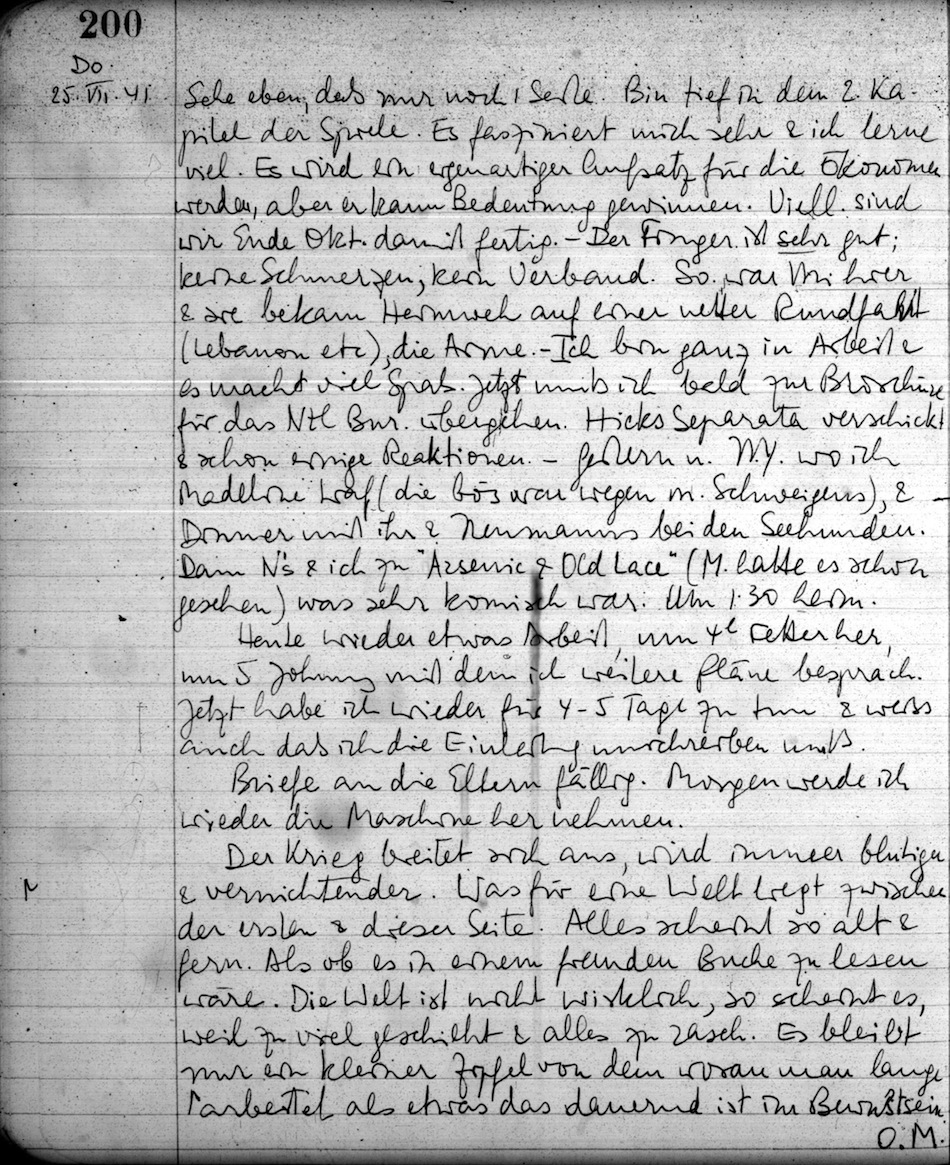 200
Do.
25.VII.41.
Sehe eben, dass nur noch 1 Seite. Bin tief in dem 2. Ka-
pitel der Spiele. Es fasziniert mich sehr & ich lerne
viel. Es wird ein eigenartiger Aufsatz für die Ökonomen
werden, aber er kann Bedeutung gewinnen. Viell. sind
wir Ende Okt. damit fertig. – Der Finger ist sehr gut;
keine Schmerzen, kein Verband. So. war Mi hier
& sie bekam Heimweh auf einer netten Rundfahrt
(Lebanon etc), die Arme. – Ich bin ganz in Arbeit &
es macht viel Spaß. Jetzt muß ich bald zur Broschüre
für das Ntl Bur. übergehen. Hicks Separata verschickt
& schon einige Reaktionen. – Gestern n. N.Y. wo ich
Madeleine traf (die bös war wegen m. Schweigens), & –
Dinner mit ihr & Neumanns bei den Seehunden.
Dann N's & ich zu "Arsenic & Old Lace" (M. hatte es schon
gesehen) was sehr komisch war. Um 1.30 heim.
Heute wieder etwas Arbeit, um 4h Fetter her,
um 5 Johnny mit dem ich weitere Pläne besprach.
Jetzt habe ich wieder für 4-5 Tage zu tun & weiss
auch das ich die Einleitung umschreiben muß.
Briefe an die Eltern fällig. Morgen werde ich
wieder die Maschine her nehmen.
Der Krieg breitet sich aus, wird immer blutiger
& vernichtender. Was für eine Welt liegt zwischen
der ersten & dieser Seite. Alles scheint so alt &
fern. Als ob es in einem fremden Buche zu lesen
wäre. Die Welt ist nicht wirklich, so scheint es,
weil zu viel geschieht & alles zu rasch. Es bleibt
nur ein kleiner Zipfel von dem woran man lange
arbeitet als etwas das dauernd ist im Bewußtsein
O.M.